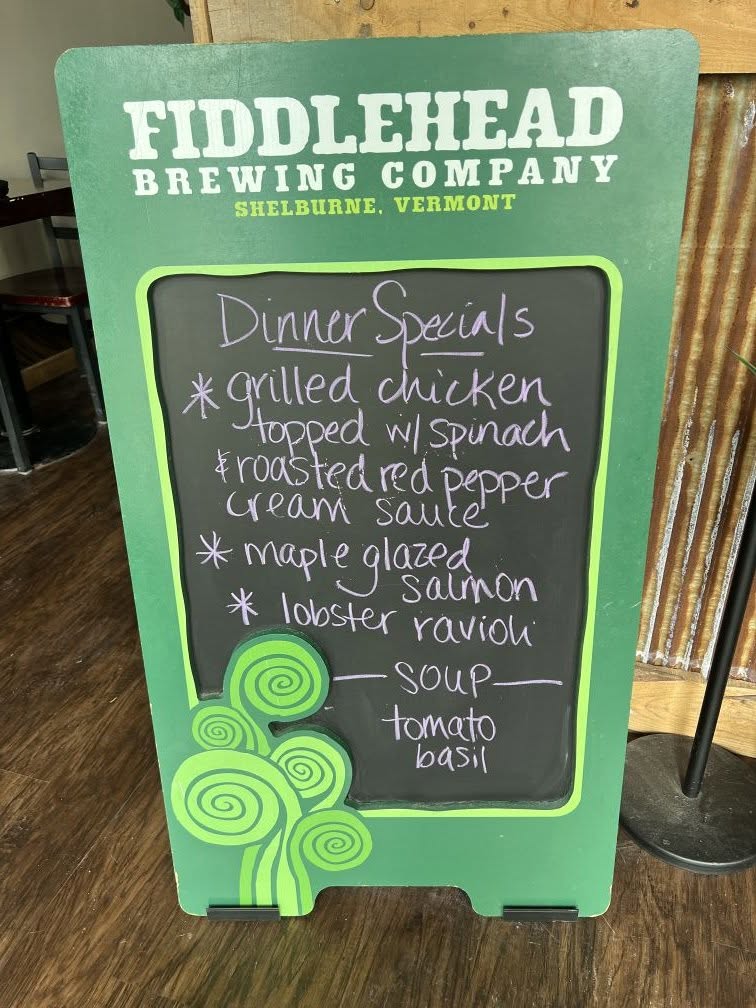 FIDDLEHEAD
BREWING COMPANY
SHELBURNE, VERMONT
Dinner Specials
* grilled chicken
topped w/ spinach
& roasted red pepper
cream sauce
* maple glazed
salmon
* lobster ravioli
— SOUP —
tomato
basil